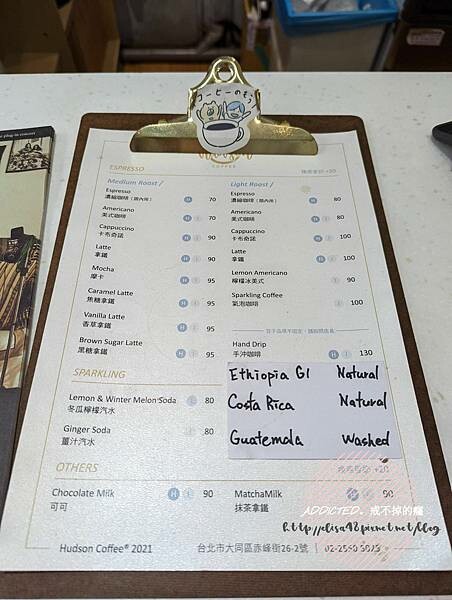 コーヒーのもう
COFFEE
ESPRESSO
+20
Medium Roast /
Espresso
濃縮咖啡 (限內用) H 70
Americano
美式咖啡 H I 70
Cappuccino
卡布奇諾 H I 95
Latte
拿鐵 H I 95
Mocha
摩卡 H I 95
Caramel Latte
焦糖拿鐵 H I 95
Vanilla Latte
香草拿鐵 H I 95
Brown Sugar Latte
黑糖拿鐵 H I 95
Light Roast /
Espresso
濃縮咖啡 (限內用) H 80
Americano
美式咖啡 H I 80
Cappuccino
卡布奇諾 H I 100
Latte
拿鐵 H I 100
Lemon Americano
檸檬冰美式 I 90
Sparkling Coffee
氣泡咖啡 I 100
Hand Drip
手沖咖啡 H I 130
Ethiopia G1 Natural
Costa Rica Natural
Guatemala Washed
SPARKLING
Lemon & Winter Melon Soda
冬瓜檸檬汽水 I 80
Ginger Soda
薑汁汽水 I 80
OTHERS
+20
Chocolate Milk
可可 H I 90
MatchaMilk
抹茶拿鐵 H I 90
ADDICTED、戒不掉的癮
http://elisa98.pixnet.net/blog
Hudson Coffee® 2021
台北市大同區赤峰街26-2號